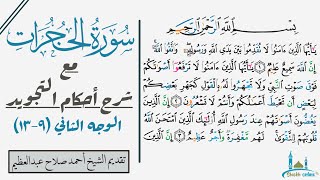 سُورَةُ الحُجُرَات
مع
شرح أحكام التجويد
الوجه الثاني (٩-١٣)
تقديم الشيخ أحمد صلاح عبدالعظيم
بِسْمِ اللَّهِ الرَّحْمَٰنِ الرَّحِيمِ
يَٰٓأَيُّهَا الَّذِينَ ءَامَنُوا لَا تُقَدِّمُوا بَيْنَ يَدَيِ اللَّهِ وَرَسُولِهِ وَاتَّقُوا اللَّهَ
إِنَّ اللَّهَ سَمِيعٌ عَلِيمٌ ١ يَٰٓأَيُّهَا الَّذِينَ ءَامَنُوا لَا تَرْفَعُوا أَصْوَٰتَكُمْ
فَوْقَ صَوْتِ النَّبِيِّ وَلَا تَجْهَرُوا لَهُ بِالْقَوْلِ كَجَهْرِ بَعْضِكُمْ
لِبَعْضٍ أَن تَحْبَطَ أَعْمَٰلُكُمْ وَأَنتُمْ لَا تَشْعُرُونَ ٢ إِنَّ الَّذِينَ
يَغُضُّونَ أَصْوَٰتَهُمْ عِندَ رَسُولِ اللَّهِ أُو۟لَٰٓئِكَ الَّذِينَ امْتَحَنَ اللَّهُ
قُلُوبَهُمْ لِلتَّقْوَىٰ لَهُم مَّغْفِرَةٌ وَأَجْرٌ عَظِيمٌ ٣